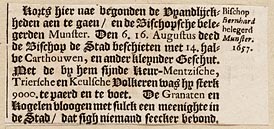 Korts hier nae begonden de Vyandlijck-
heden aen te gaen/ en de Bisschopsche bele-
gerden Munster. Den 6, 16. Augustus deed
de Bisschop de Stad beschieten met 14. hal-
ve Carthouwen, en ander kleynder Geschut.
Met de by hem sijnde Keur-Mentzische,
Triersche en Keulsche Volkeren was hy sterk
9000. te paerd en te voet. De Granaten en
Kogelen vloogen met sulck een meenighte in
de Stad/ dat sigh niemand seecker bevond.
Bisschop
Bernhard
belegerd
Munster,
1657.